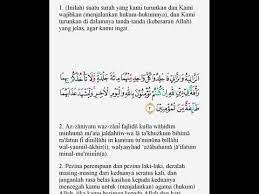 1. (Inilah) suatu surah yang kami turunkan dan Kami
wajibkan (menjalankan hukum-hukumnya), dan Kami
turunkan di dalamnya tanda-tanda (kebesaran Allah)
yang jelas, agar kamu ingat
اَلزَّانِيَةُ وَالزَّانِيْ فَاجْلِدُوْا كُلَّ وَاحِدٍ مِّنْهُمَا مِائَةَ جَلْدَةٍ وَّلَا تَأْخُذْكُمْ
بِهِمَا رَأْفَةٌ فِيْ دِيْنِ اللّٰهِ اِنْ كُنْتُمْ تُؤْمِنُوْنَ بِاللّٰهِ وَالْيَوْمِ الْاٰخِرِ وَلْيَشْهَدْ عَذَابَهُمَا
طَاۤىِٕفَةٌ مِّنَ الْمُؤْمِنِيْنَ ٢
2. Az-zāniyatu waz-zānī fajlidū kulla wāḥidim
minhumā mi'ata jaldatiw wa lā ta'khużkum bihimā
ra'fatun fī dīnillāhi in kuntum tu'minūna billāhi
wal-yaumil-ākhir(i), walyasyhad 'ażābahumā ṭā'ifatum
minal-mu'minīn(a)
2. Pezina perempuan dan pezina laki-laki, deralah
masing-masing dari keduanya seratus kali, dan
janganlah rasa belas kasihan kepada keduanya
mencegah kamu untuk (menjalankan) agama (hukum)
Allah, jika kamu beriman kepada Allah dan hari